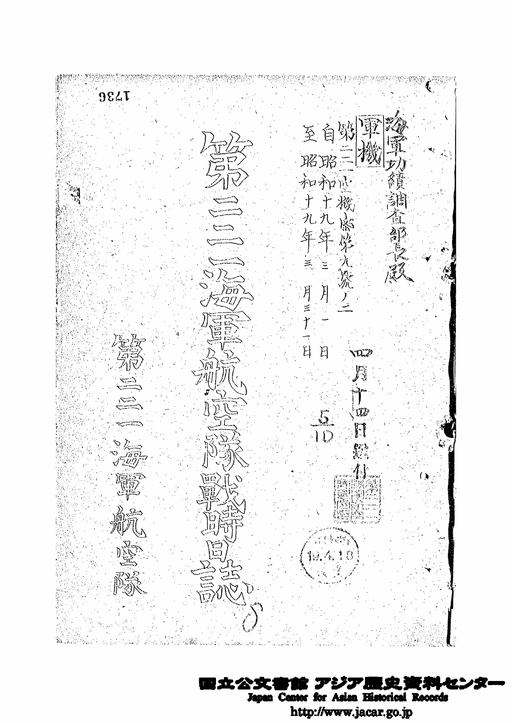 海軍功績調査部長殿
軍機
第二二一空機密第九號ノ二
自昭和十九年三月一日
至昭和十九年三月三十一日
四月十四日送付
5/10
19.4.18
第二二一海軍航空隊戰時日誌
第二二一海軍航空隊
1736
国立公文書館 アジア歴史資料センター
Japan Center for Asian Historical Records
http://www.jacar.go.jp